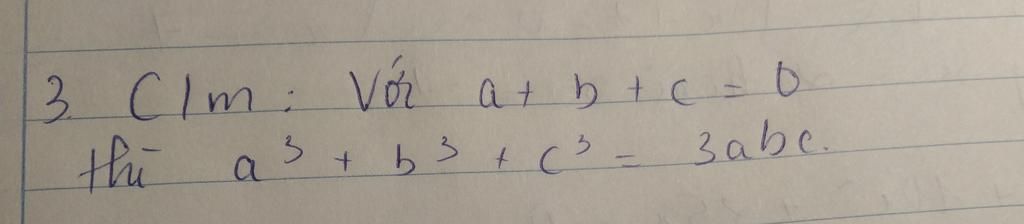 3. C/m: Với a + b + c = 0
thì a³ + b³ + c³ = 3abc.